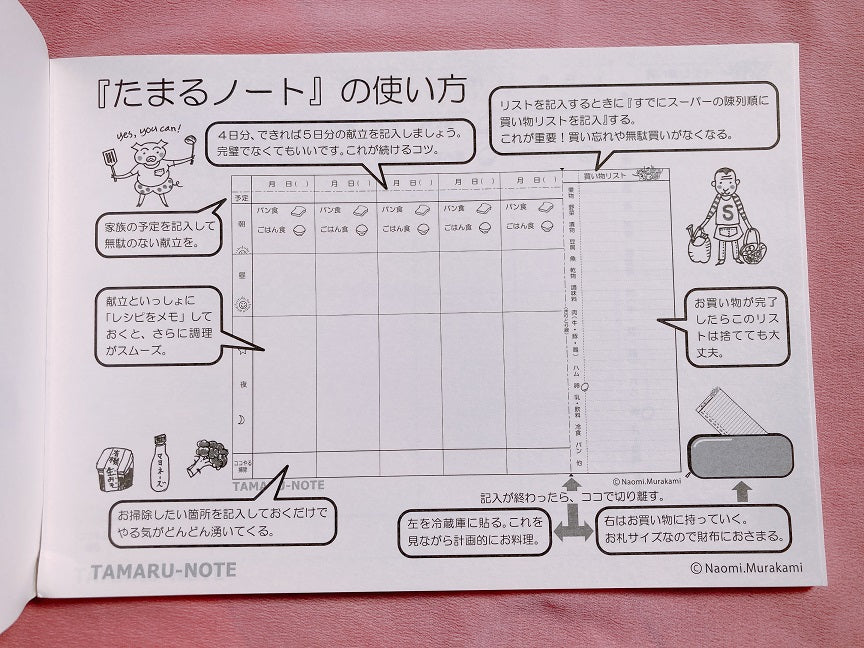 『たまるノート』の使い方
yes, you can!
４日分、できれば５日分の献立を記入しましょう。
完璧でなくてもいいです。これが続けるコツ。
リストを記入するときに『すでにスーパーの陳列順に
買い物リストを記入』する。
これが重要！買い忘れや無駄買いがなくなる。
家族の予定を記入して
無駄のない献立を。
献立といっしょに
「レシピをメモ」して
おくと、さらに調理
がスムーズ。
月　日(　) 月　日(　) 月　日(　) 月　日(　) 月　日(　)
予定
朝
パン食 パン食 パン食 パン食 パン食
ごはん食 ごはん食 ごはん食 ごはん食 ごはん食
昼
夜
ココやる
掃除
買い物リスト
果物 野菜 漬物 豆腐 魚 乾物 調味料 肉(牛・豚・鶏) ハム 卵 乳・飲料 冷食 パン 他
S
お買い物が完了
したらこのリス
トは捨てても大
丈夫。
マヨネーズ
TAMARU-NOTE
©Naomi.Murakami
記入が終わったら、ココで切り離す。
お掃除したい箇所を記入しておくだけで
やる気がどんどん湧いてくる。
左を冷蔵庫に貼る。これを
見ながら計画的にお料理。
右はお買い物に持っていく。
お札サイズなので財布におさまる。
TAMARU-NOTE
©Naomi.Murakami